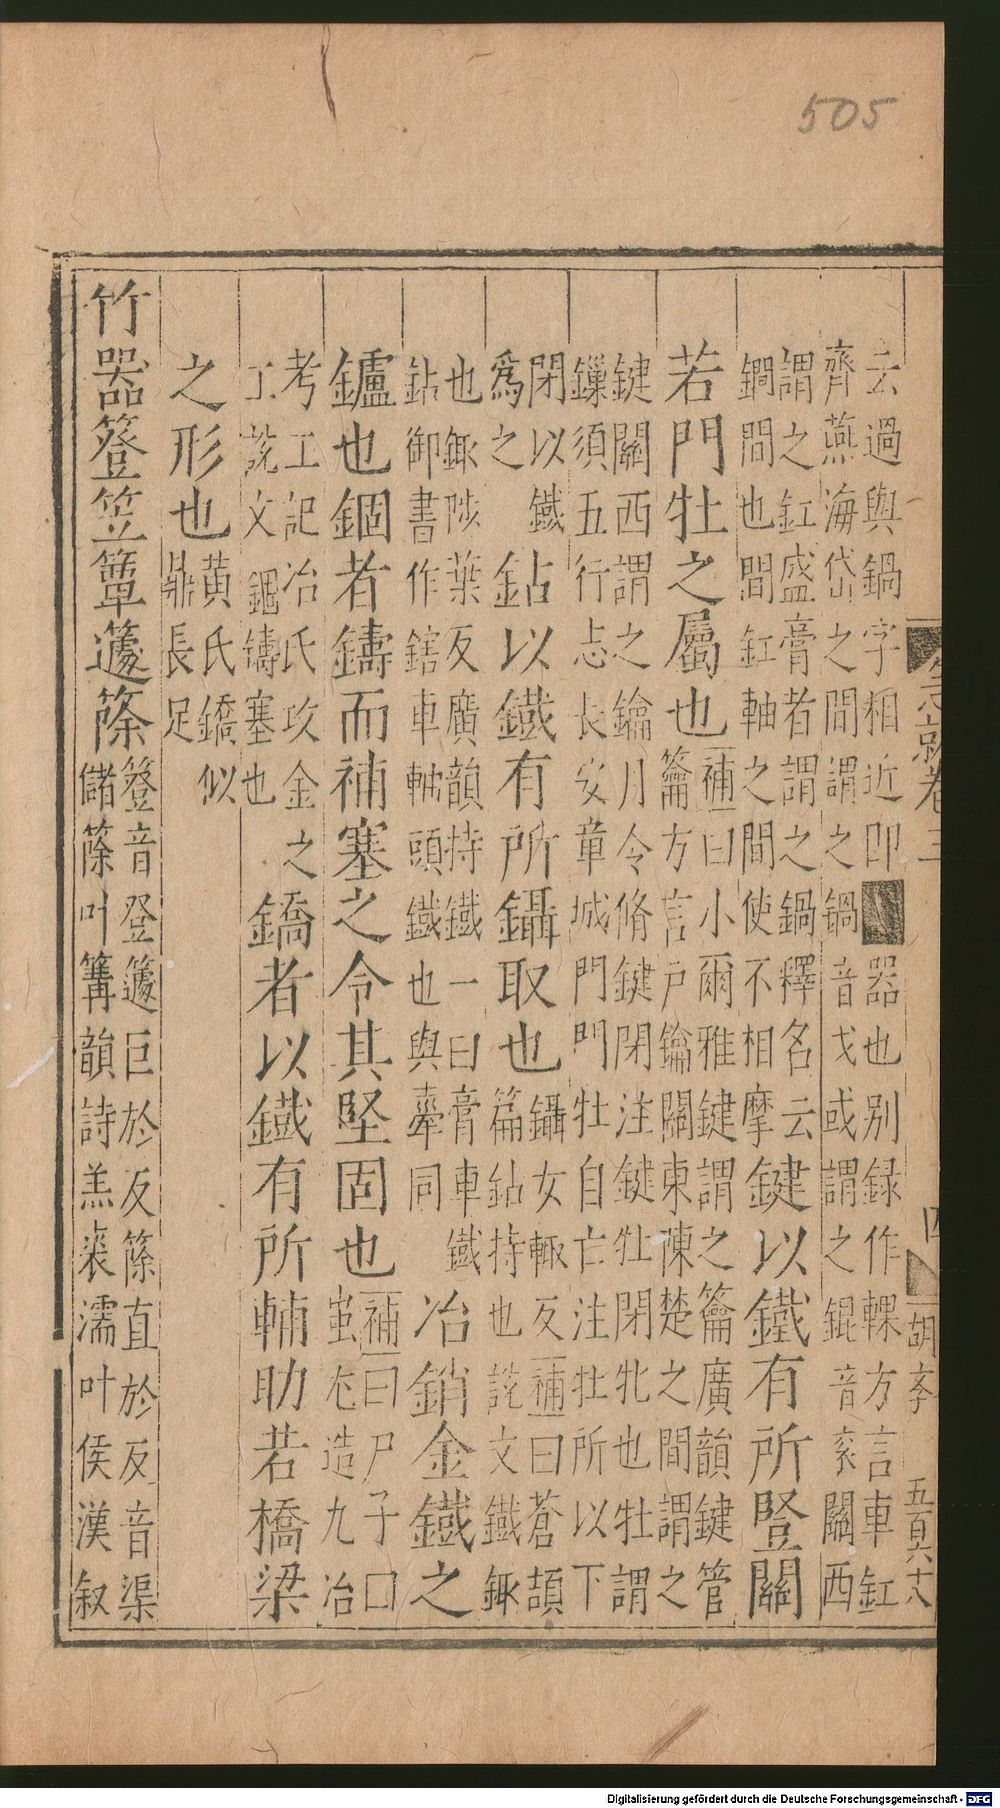 505
云過與鍋字相近卽
器也別録作輠方言車釭
齊燕海岱之間謂之鍋音戈或謂之錕音衮關西
謂之釭盛膏者謂之鍋釋名云
鐧間也間釭軸之間使不相摩
鍵以鐵有所豎關
若門牡之屬也
補曰小爾雅鍵謂之籥廣韻鍵管
籥方言戶鑰關東陳楚之間謂之
鍵關西謂之鑰月令脩鍵閉注鍵牡閉牝也牡謂
鏁須五行志長安章城門門牡自亡注牡所以下
閉以鐵
爲之
鉆以鐵有所鑷取也
鑷女輒反補曰蒼頡
篇鉆持也說文鐵鋷
也鋷陟葉反廣韻持鐵一曰膏車鐵
鉆御書作鎋車軸頭鐵也與舝同
冶銷金鐵之
鑪也錮者鑄而補塞之令其堅固也
補曰尸子曰
蚩尤造九冶
考工記冶氏攻金之
工說文錮鑄塞也
鐈者以鐵有所輔助若橋梁
之形也
黃氏鐈似
鼎長足
竹器簦笠簟籧篨
簦音登籧巨於反篨直於反音渠
儲篨叶篝韻詩羔裘濡叶侯漢叙
急就卷三
四
胡李
五百六十八
Digitalisierung gefördert durch die Deutsche Forschungsgemeinschaft - DFG